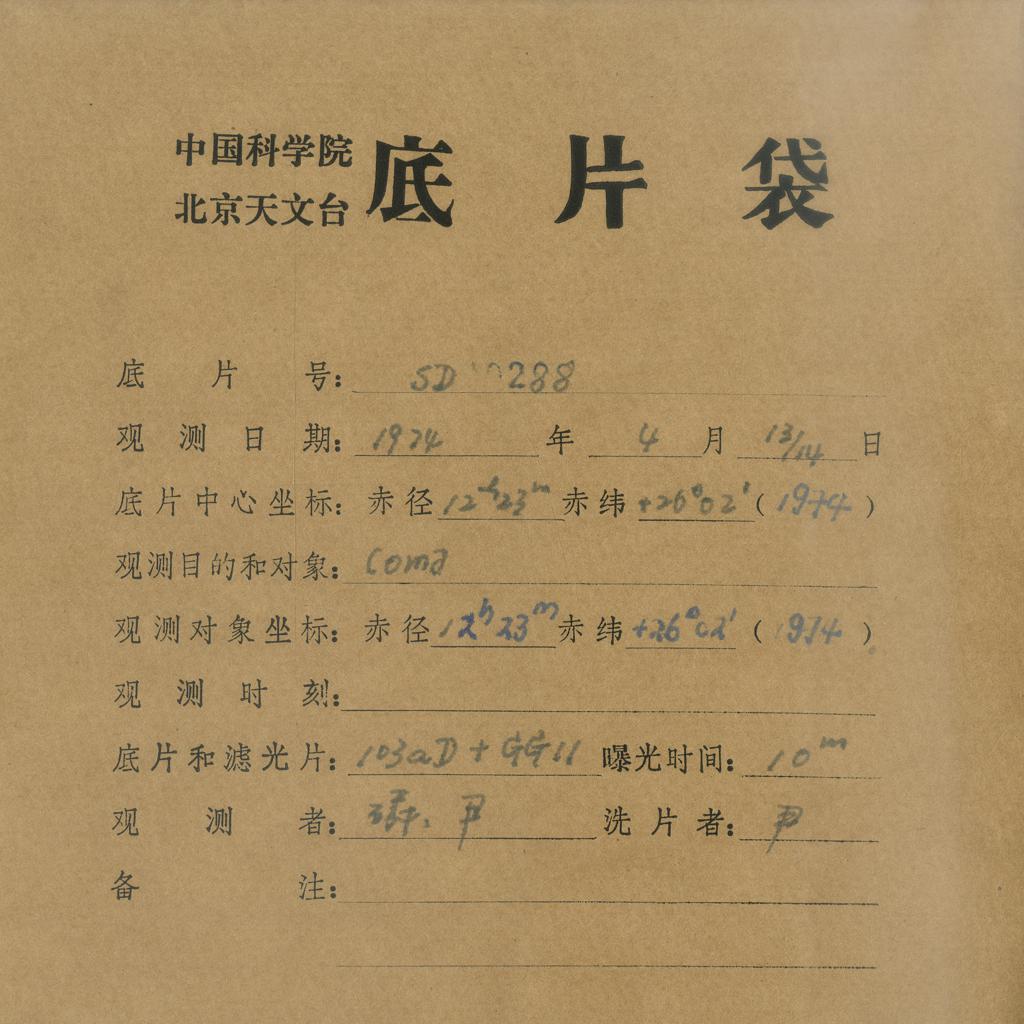 中国科学院
北京天文台
底片袋
底片号: SD 0288
观测日期: 1974年 4月 13/14日
底片中心坐标: 赤径 12h23m 赤纬 +26°02′ (1974)
观测目的和对象: Coma
观测对象坐标: 赤径 12h23m 赤纬 +26°02′ (1974)
观测时刻:
底片和滤光片: 103aD + GG11 曝光时间: 10m
观测者: 尹 洗片者: 尹
备注: